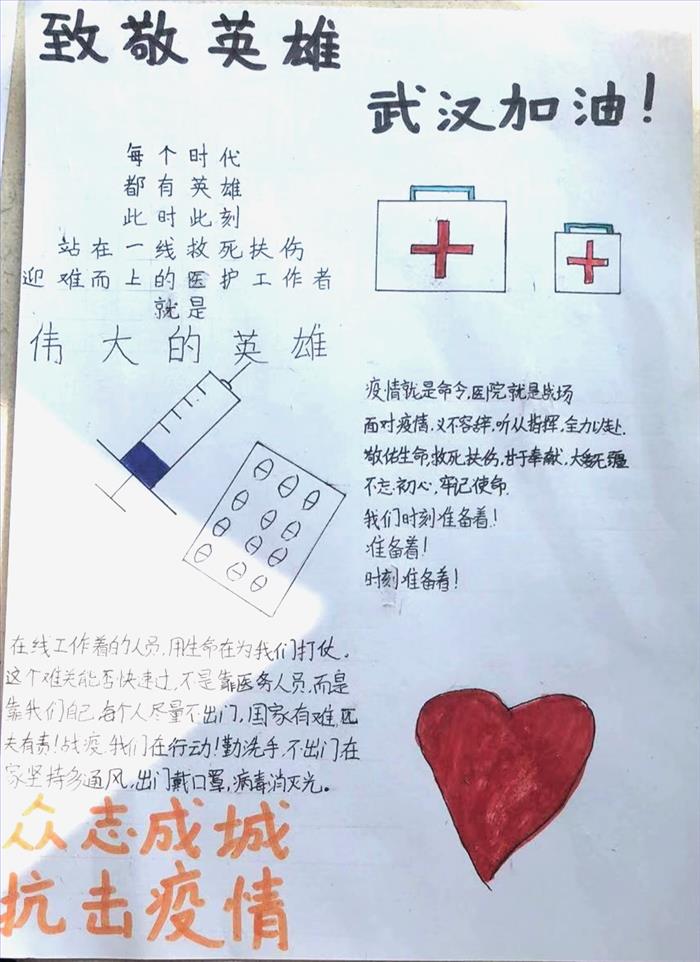 致敬英雄
武汉加油！
每个时代
都有英雄
此时此刻
站在一线救死扶伤
迎难而上的医护工作者
就是
伟大的英雄
疫情就是命令,医院就是战场
面对疫情,义不容辞,听从指挥,全力以赴.
敬佑生命,救死扶伤,甘于奉献,大爱无疆
不忘初心,牢记使命.
我们时刻准备着！
准备着！
时刻准备着！
在线工作着的人员,用生命在为我们打仗。
这个难关能否快速过,不是靠医务人员,而是
靠我们自己,每个人尽量不出门,国家有难,匹
夫有责！战疫,我们在行动！勤洗手,不出门,在
家坚持多通风,出门戴口罩,病毒消灭光。
众志成城
抗击疫情